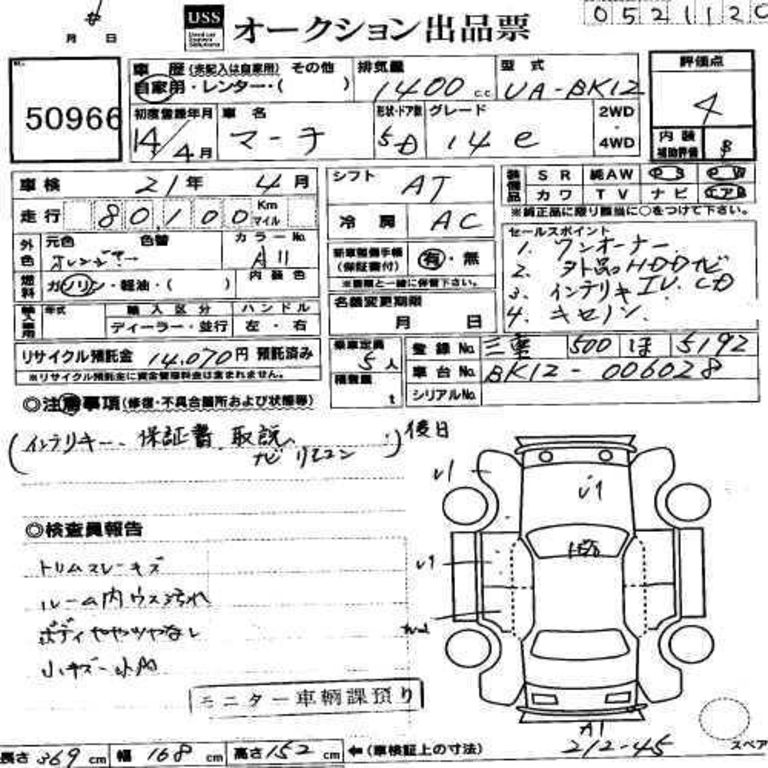 月 日
USS
オークション出品票
0521120
50966
車歴(未記入は自家用) その他
自家用・レンター・( )
排気量
1400 c.c
型式
UA-BK12
評価点
4
内装補助評価 B
初度登録年月
14/4月
車名
マーチ
形状・ドア数
5D
グレード
14e
2WD
・
4WD
車検 21年 4月
走行 80,100 Km マイル
外色 元色 色替 カラーNo.
A11
内装色
燃料 ガソリン・軽油・( )
年式 輸入区分 ハンドル
ディーラー・並行 左・右
リサイクル預託金 14,070円 預託済み
※リサイクル預託金に資金管理料金は含まれません。
シフト AT
冷房 AC
新車整備手帳(保証書付) 有・無
※書類と一緒に保管下さい。
名義変更期限
月 日
乗車定員 5人
積載量 t
装備品 SR 純AW PS PW
カワ TV ナビ エアB
※純正品に限り該当に○をつけて下さい。
セールスポイント
1. ワンオーナー
2. 外品HDDナビ
3. インテリキー CD
4. キセノン
登録No. 三重 500 ほ 5192
車台No. BK12-006028
シリアルNo.
◎注意事項(修復・不具合箇所および状態等)
(インテリキー、保証書、取説、ナビリモコン)後日
◎検査員報告
トリムスレキズ
ルーム内ウス汚れ
ボディややツヤなし
小キズ 小凹
モニター車輌課預り
U1
U1
U1
A1
212-45
スペア
長さ 369cm 幅 168cm 高さ 152cm ←(車検証上の寸法)